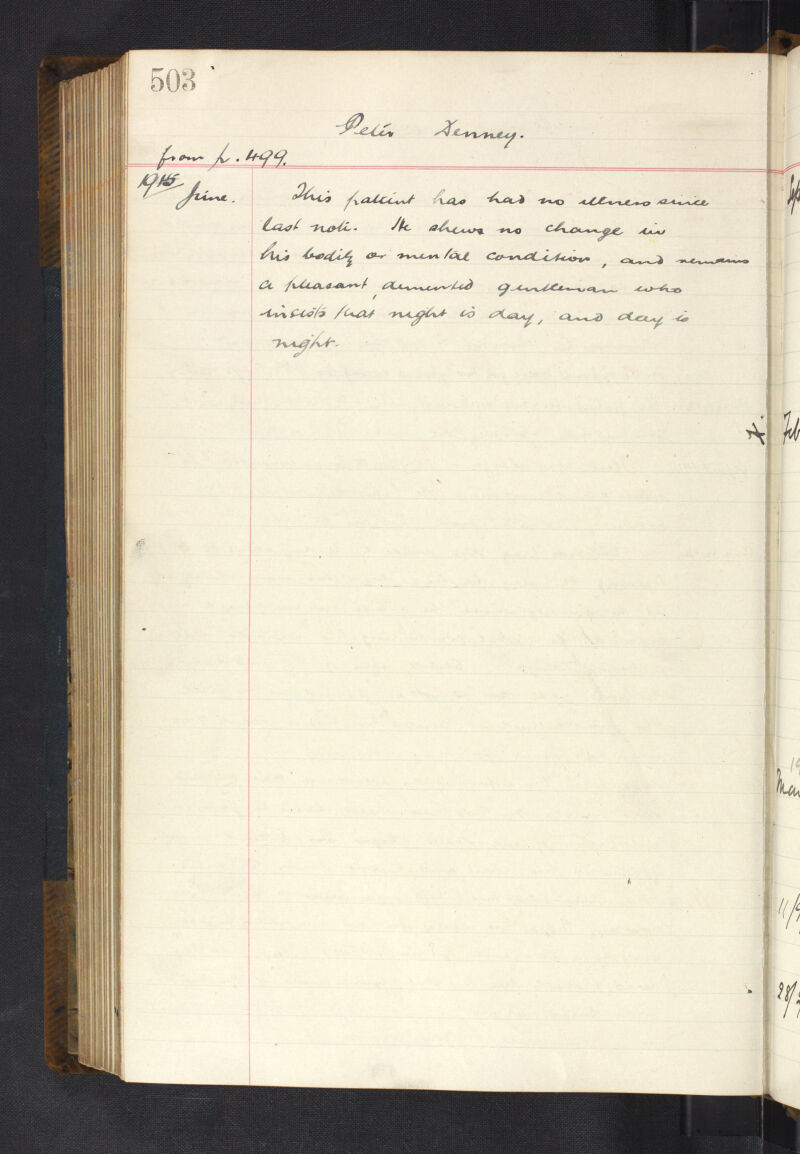 503
Peter Denney.
from p. 499.
1915
June. This patient has had no illness since
last note. He shews no change in
his bodily or mental condition, and remains
a pleasant, demented gentleman who
insists that night is day, and day is
night.
Feb
11/9
28/